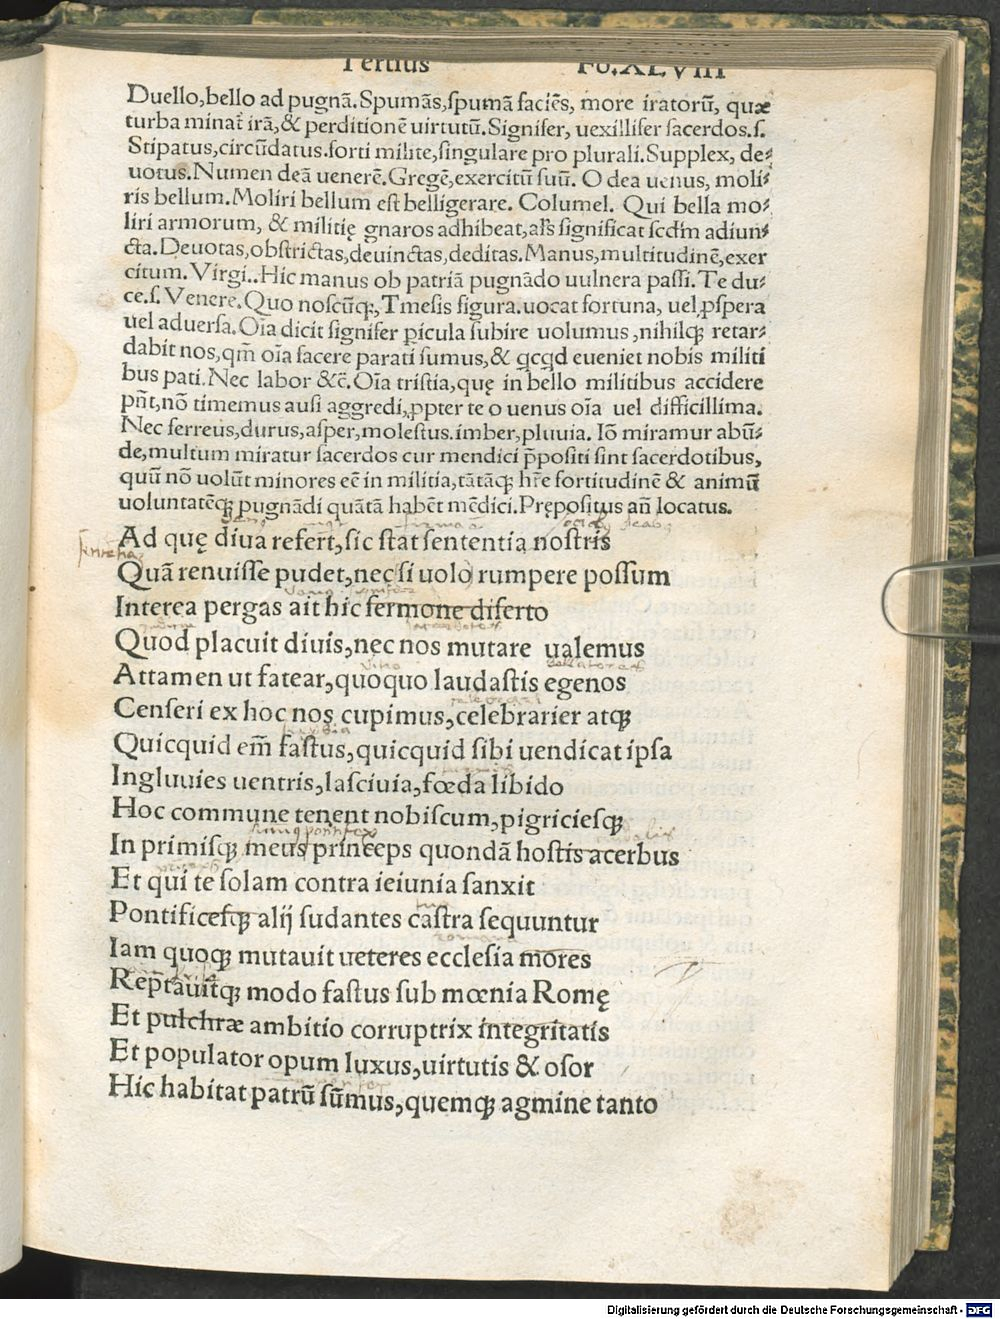 Tertius Fo.XLVIII
Duello,bello ad pugnā.Spumās,ſpumā faciēs, more iratorū, quæ
turba minat̄ irā,& perditionē uirtutū.Signifer, uexillifer ſacerdos.ſ.
Stipatus,circūdatus.forti milite,ſingulare pro plurali.Supplex, de⸗
uotus.Numen deā uenerē.Gregē,exercitū ſuū. O dea uenus, moli⸗
ris bellum.Moliri bellum eſt belligerare. Columel. Qui bella mo⸗
liri armorum, & militię gnaros adhibeat,als̄ ſignificat ſcdm̄ adiun⸗
cta.Deuotas,obſtrictas,deuinctas,deditas.Manus,multitudinē,exer
citum.Virgi..Hic manus ob patriā pugnādo uulnera paſſi.Te du⸗
ce.ſ.Venere.Quo noſcūq;,Tmeſis figura.uocat fortuna, uel ꝓſpera
uel aduerſa.Oīa dicit ſignifer pícula ſubire uolumus,nihilq; retar⸗
dabit nos,qm̄ oīa facere parati ſumus,& qcqd eueniet nobis militi
bus pati.Nec labor &c̄. Oīa triſtia,quę in bello militibus accidere
pn̄t,nō timemus auſi aggredi,ꝓpter te o uenus oīa uel difficillima.
Nec ferreus,durus,aſper,moleſtus.imber,pluuia. Iō miramur abū⸗
de,multum miratur ſacerdos cur mendici p̄poſiti ſint ſacerdotibus,
quū nō uolūt minores eē in militia,tātāq; hr̄e fortitudinē & animū
uoluntatēq; pugnādi quātā habēt mēdici.Prępoſitus an̄ locatus.
Ad quę diua refert,ſic ſtat ſententia noſtris
Quā renuiſſe pudet,nec ſi uolo rumpere poſſum
Interea pergas ait hic ſermone diſerto
Quod placuit diuis,nec nos mutare ualemus
Attamen ut fatear,quoquo laudaſtis egenos
Cenſeri ex hoc nos cupimus,celebrarier atq;
Quicquid em̄ faſtus,quicquid ſibi uendicat ipſa
Ingluuies uentris,laſciuia,fœda libido
Hoc commune tenent nobiſcum,pigricieſq;
In primiſq; meus princeps quondā hoſtis acerbus
Et qui te ſolam contra ieiunia ſanxit
Pontificeſq; alij ſudantes caſtra ſequuntur
Iam quoq; mutauit ueteres eccleſia mores
Reptauitq; modo faſtus ſub mœnia Romę
Et pulchræ ambitio corruptrix integritatis
Et populator opum luxus,uirtutis & oſor
Hic habitat patrū ſūmus,quemq; agmine tanto
Digitalisierung gefördert durch die Deutsche Forschungsgemeinschaft - DFG